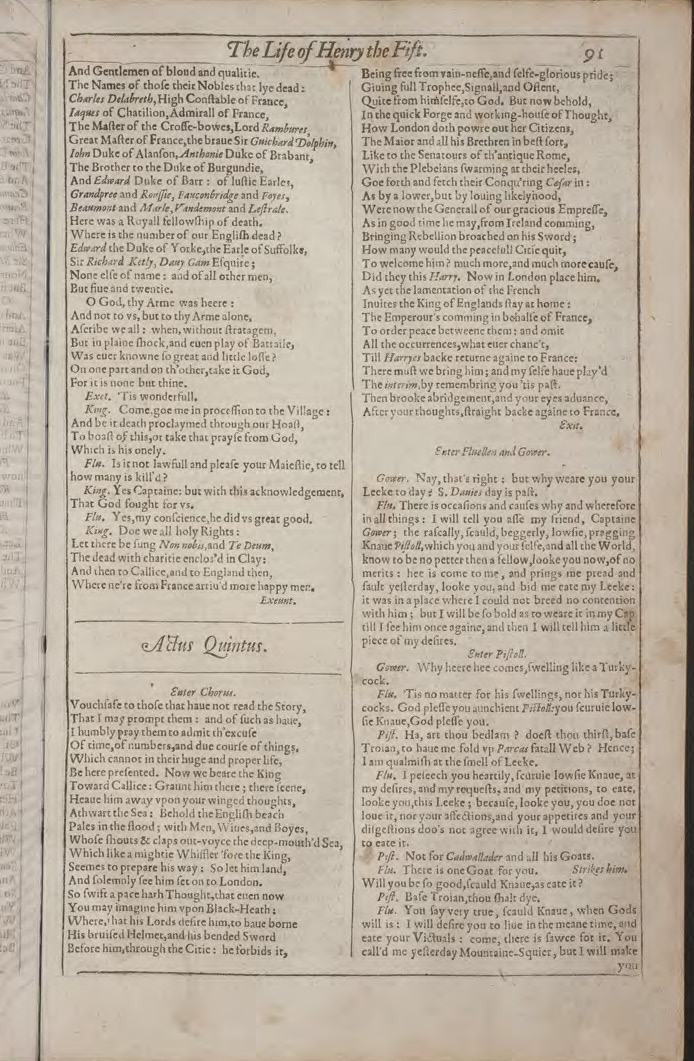 The Life of Henry the Fift. 91
And Gentlemen of bloud and qualitie.
The Names of thoſe their Nobles that lye dead:
Charles Delabreth, High Conſtable of France,
Iaques of Chatilion, Admirall of France,
The Maſter of the Croſſe-bowes, Lord Rambures,
Great Maſter of France, the braue Sir Guichard Dolphin,
Iohn Duke of Alanſon, Anthonie Duke of Brabant,
The Brother to the Duke of Burgundie,
And Edward Duke of Barr: of luſtie Earles,
Grandpree and Rouſſie, Fauconbridge and Foyes,
Beaumont and Marle, Vandemont and Leſtrale.
Here was a Royall fellowſhip of death.
Where is the number of our Engliſh dead?
Edward the Duke of Yorke, the Earle of Suffolke,
Sir Richard Ketly, Dauy Gam Eſquire;
None elſe of name: and of all other men,
But fiue and twentie.
O God, thy Arme was heere:
And not to vs, but to thy Arme alone,
Aſcribe we all: when, without ſtratagem,
But in plaine ſhock, and euen play of Battaile,
Was euer knowne ſo great and little loſſe?
On one part and on th'other, take it God,
For it is none but thine.
Exet. 'Tis wonderfull.
King. Come, goe me in proceſſion to the Village:
And be it death proclaymed through our Hoaſt,
To boaſt of this, or take that prayſe from God,
Which is his onely.
Flu. Is it not lawfull and pleaſe your Maieſtie, to tell
how many is kill'd?
King. Yes Captaine: but with this acknowledgement,
That God fought for vs.
Flu. Yes, my conſcience, he did vs great good.
King. Doe we all holy Rights:
Let there be ſung Non nobis, and Te Deum,
The dead with charitie enclos'd in Clay:
And then to Callice, and to England then,
Where ne're from France arriu'd more happy men.
Exeunt.
Actus Quintus.
Enter Chorus.
Vouchſafe to thoſe that haue not read the Story,
That I may prompt them: and of ſuch as haue,
I humbly pray them to admit th'excuſe
Of time, of numbers, and due courſe of things,
Which cannot in their huge and proper life,
Be here preſented. Now we beare the King
Toward Callice: Graunt him there; there ſeene,
Heaue him away vpon your winged thoughts,
Athwart the Sea: Behold the Engliſh beach
Pales in the flood; with Men, Wiues, and Boyes,
Whoſe ſhouts & claps out-voyce the deep-mouth'd Sea,
Which like a mightie Whiffler 'fore the King,
Seemes to prepare his way: So let him land,
And ſolemnly ſee him ſet on to London.
So ſwift a pace hath Thought, that euen now
You may imagine him vpon Black-Heath:
Where, that his Lords deſire him, to haue borne
His bruiſed Helmet, and his bended Sword
Before him, through the Citie: he forbids it,
Being free from vain-neſſe, and ſelfe-glorious pride;
Giuing full Trophee, Signall, and Oſtent,
Quite from himſelfe, to God. But now behold,
In the quick Forge and working-houſe of Thought,
How London doth powre out her Citizens,
The Maior and all his Brethren in beſt ſort,
Like to the Senatours of th'antique Rome,
With the Plebeians ſwarming at their heeles,
Goe forth and fetch their Conqu'ring Cæſar in:
As by a lower, but by louing likelyhood,
Were now the Generall of our gracious Empreſſe,
As in good time he may, from Ireland comming,
Bringing Rebellion broached on his Sword;
How many would the peacefull Citie quit,
To welcome him? much more, and much more cauſe,
Did they this Harry. Now in London place him.
As yet the lamentation of the French
Inuites the King of Englands ſtay at home:
The Emperour's comming in behalfe of France,
To order peace betweene them: and omit
All the occurrences, what euer chanc't,
Till Harryes backe returne againe to France:
There muſt we bring him; and my ſelfe haue play'd
The interim, by remembring you 'tis paſt.
Then brooke abridgement, and your eyes aduance,
After your thoughts, ſtraight backe againe to France.
Exit.
Enter Fluellen and Gower.
Gower. Nay, that's right: but why weare you your
Leeke to day? S. Dauies day is paſt.
Flu. There is occaſions and cauſes why and wherefore
in all things: I will tell you aſſe my friend, Captaine
Gower; the raſcally, ſcauld, beggerly, lowſie, pragging
Knaue Piſtoll, which you and your ſelfe, and all the World,
know to be no petter then a fellow, looke you now, of no
merits: hee is come to me, and prings me pread and
ſault yeſterday, looke you, and bid me eate my Leeke:
it was in a place where I could not breed no contention
with him; but I will be ſo bold as to weare it in my Cap
till I ſee him once againe, and then I will tell him a little
piece of my deſires.
Enter Piſtoll.
Gower. Why heere hee comes, ſwelling like a Turky-
cock.
Flu. 'Tis no matter for his ſwellings, nor his Turky-
cocks. God pleſſe you aunchient Piſtoll: you ſcuruie low-
ſie Knaue, God pleſſe you.
Piſt. Ha, art thou bedlam? doeſt thou thirſt, baſe
Troian, to haue me fold vp Parcas fatall Web? Hence;
I am qualmiſh at the ſmell of Leeke.
Flu. I peſeech you heartily, ſcuruie lowſie Knaue, at
my deſires, and my requeſts, and my petitions, to eate,
looke you, this Leeke; becauſe, looke you, you doe not
loue it, nor your affections, and your appetites and your
diſgeſtions doo's not agree with it, I would deſire you
to eate it.
Piſt. Not for Cadwallader and all his Goats.
Flu. There is one Goat for you. Strikes him.
Will you be ſo good, ſcauld Knaue, as eate it?
Piſt. Baſe Troian, thou ſhalt dye.
Flu. You ſay very true, ſcauld Knaue, when Gods
will is: I will deſire you to liue in the meane time, and
eate your Victuals: come, there is ſawce for it. You
call'd me yeſterday Mountaine-Squier, but I will make
you